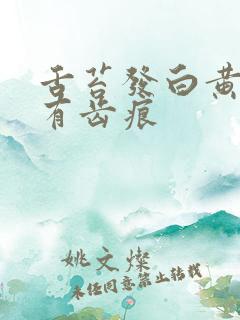 舌苔發白黄
有齿痕
姚文燦
未任同意禁止转载